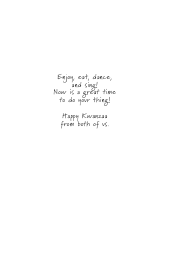 Enjoy, eat, dance,
and sing!
Now is a great time
to do your thing!
Happy Kwanzaa
from both of us.